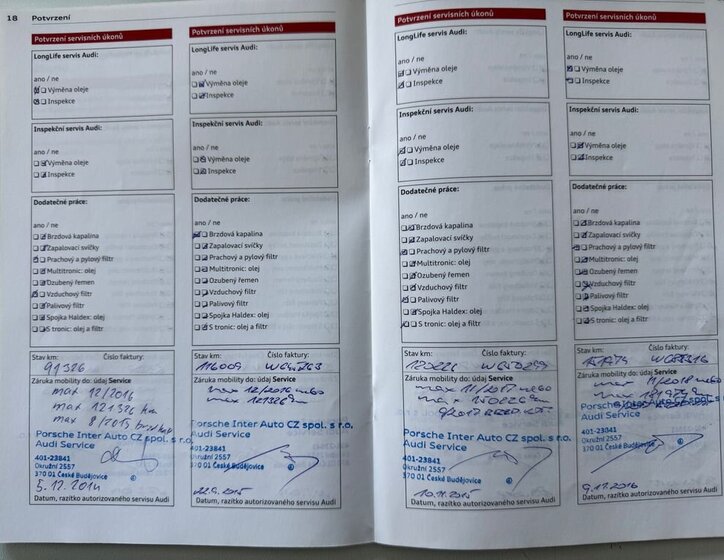 18 Potvrzení
Potvrzení servisních úkonů
LongLife servis Audi:
ano / ne
Výměna oleje
Inspekce
Inspekční servis Audi:
ano / ne
Výměna oleje
Inspekce
Dodatečné práce:
ano / ne
Brzdová kapalina
Zapalovací svíčky
Prachový a pylový filtr
Multitronic: olej
Ozubený řemen
Vzduchový filtr
Palivový filtr
Spojka Haldex: olej
S tronic: olej a filtr
Stav km: Číslo faktury:
91326
Záruka mobility do: údaj Service
max 12/2016
max 121326 km
max 8/2015
Porsche Inter Auto CZ spol. s r.o.
Audi Service
401-23841
Okružní 2557
370 01 České Budějovice
5.12.2014
Datum, razítko autorizovaného servisu Audi
Potvrzení servisních úkonů
LongLife servis Audi:
ano / ne
Výměna oleje
Inspekce
Inspekční servis Audi:
ano / ne
Výměna oleje
Inspekce
Dodatečné práce:
ano / ne
Brzdová kapalina
Zapalovací svíčky
Prachový a pylový filtr
Multitronic: olej
Ozubený řemen
Vzduchový filtr
Palivový filtr
Spojka Haldex: olej
S tronic: olej a filtr
Stav km: Číslo faktury:
116009
Záruka mobility do: údaj Service
max 12/2016 nebo
max 121326
Porsche Inter Auto CZ spol. s r.o.
Audi Service
401-23841
Okružní 2557
370 01 České Budějovice
22.9.2015
Datum, razítko autorizovaného servisu Audi
Potvrzení servisních úkonů
LongLife servis Audi:
ano / ne
Výměna oleje
Inspekce
Inspekční servis Audi:
ano / ne
Výměna oleje
Inspekce
Dodatečné práce:
ano / ne
Brzdová kapalina
Zapalovací svíčky
Prachový a pylový filtr
Multitronic: olej
Ozubený řemen
Vzduchový filtr
Palivový filtr
Spojka Haldex: olej
S tronic: olej a filtr
Stav km: Číslo faktury:
120226
Záruka mobility do: údaj Service
max 11/2017 nebo
max 150226
9/2017
Porsche Inter Auto CZ spol. s r.o.
Audi Service
401-23841
Okružní 2557
370 01 České Budějovice
10.11.2015
Datum, razítko autorizovaného servisu Audi
Potvrzení servisních úkonů
LongLife servis Audi:
ano / ne
Výměna oleje
Inspekce
Inspekční servis Audi:
ano / ne
Výměna oleje
Inspekce
Dodatečné práce:
ano / ne
Brzdová kapalina
Zapalovací svíčky
Prachový a pylový filtr
Multitronic: olej
Ozubený řemen
Vzduchový filtr
Palivový filtr
Spojka Haldex: olej
S tronic: olej a filtr
Stav km: Číslo faktury:
Záruka mobility do: údaj Service
max 11/2018 nebo
max
Porsche Inter Auto CZ spol. s r.o.
Audi Service
401-23841
Okružní 2557
370 01 České Budějovice
9.11.2016
Datum, razítko autorizovaného servisu Audi